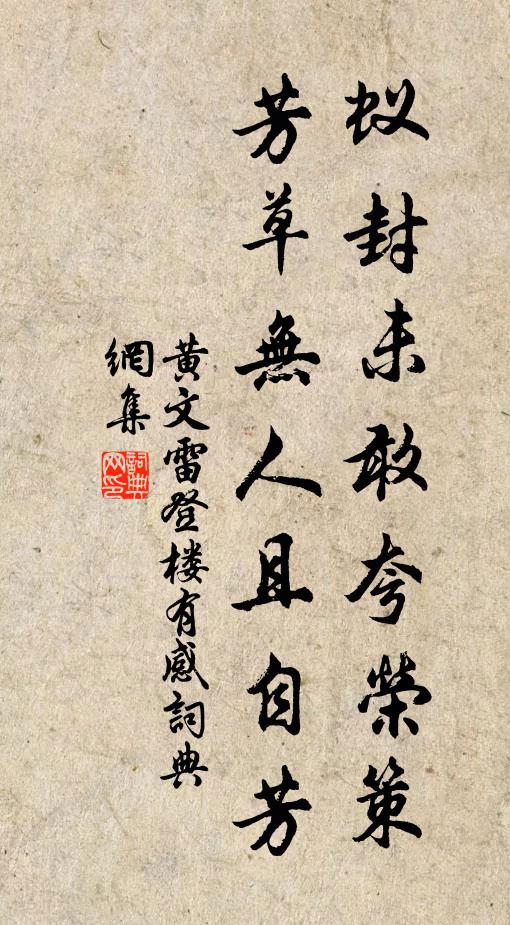 蚁封未敢夸榮策
芳草無人且自芳
黃文雷登楼有感詞典
網集
詞典
网印